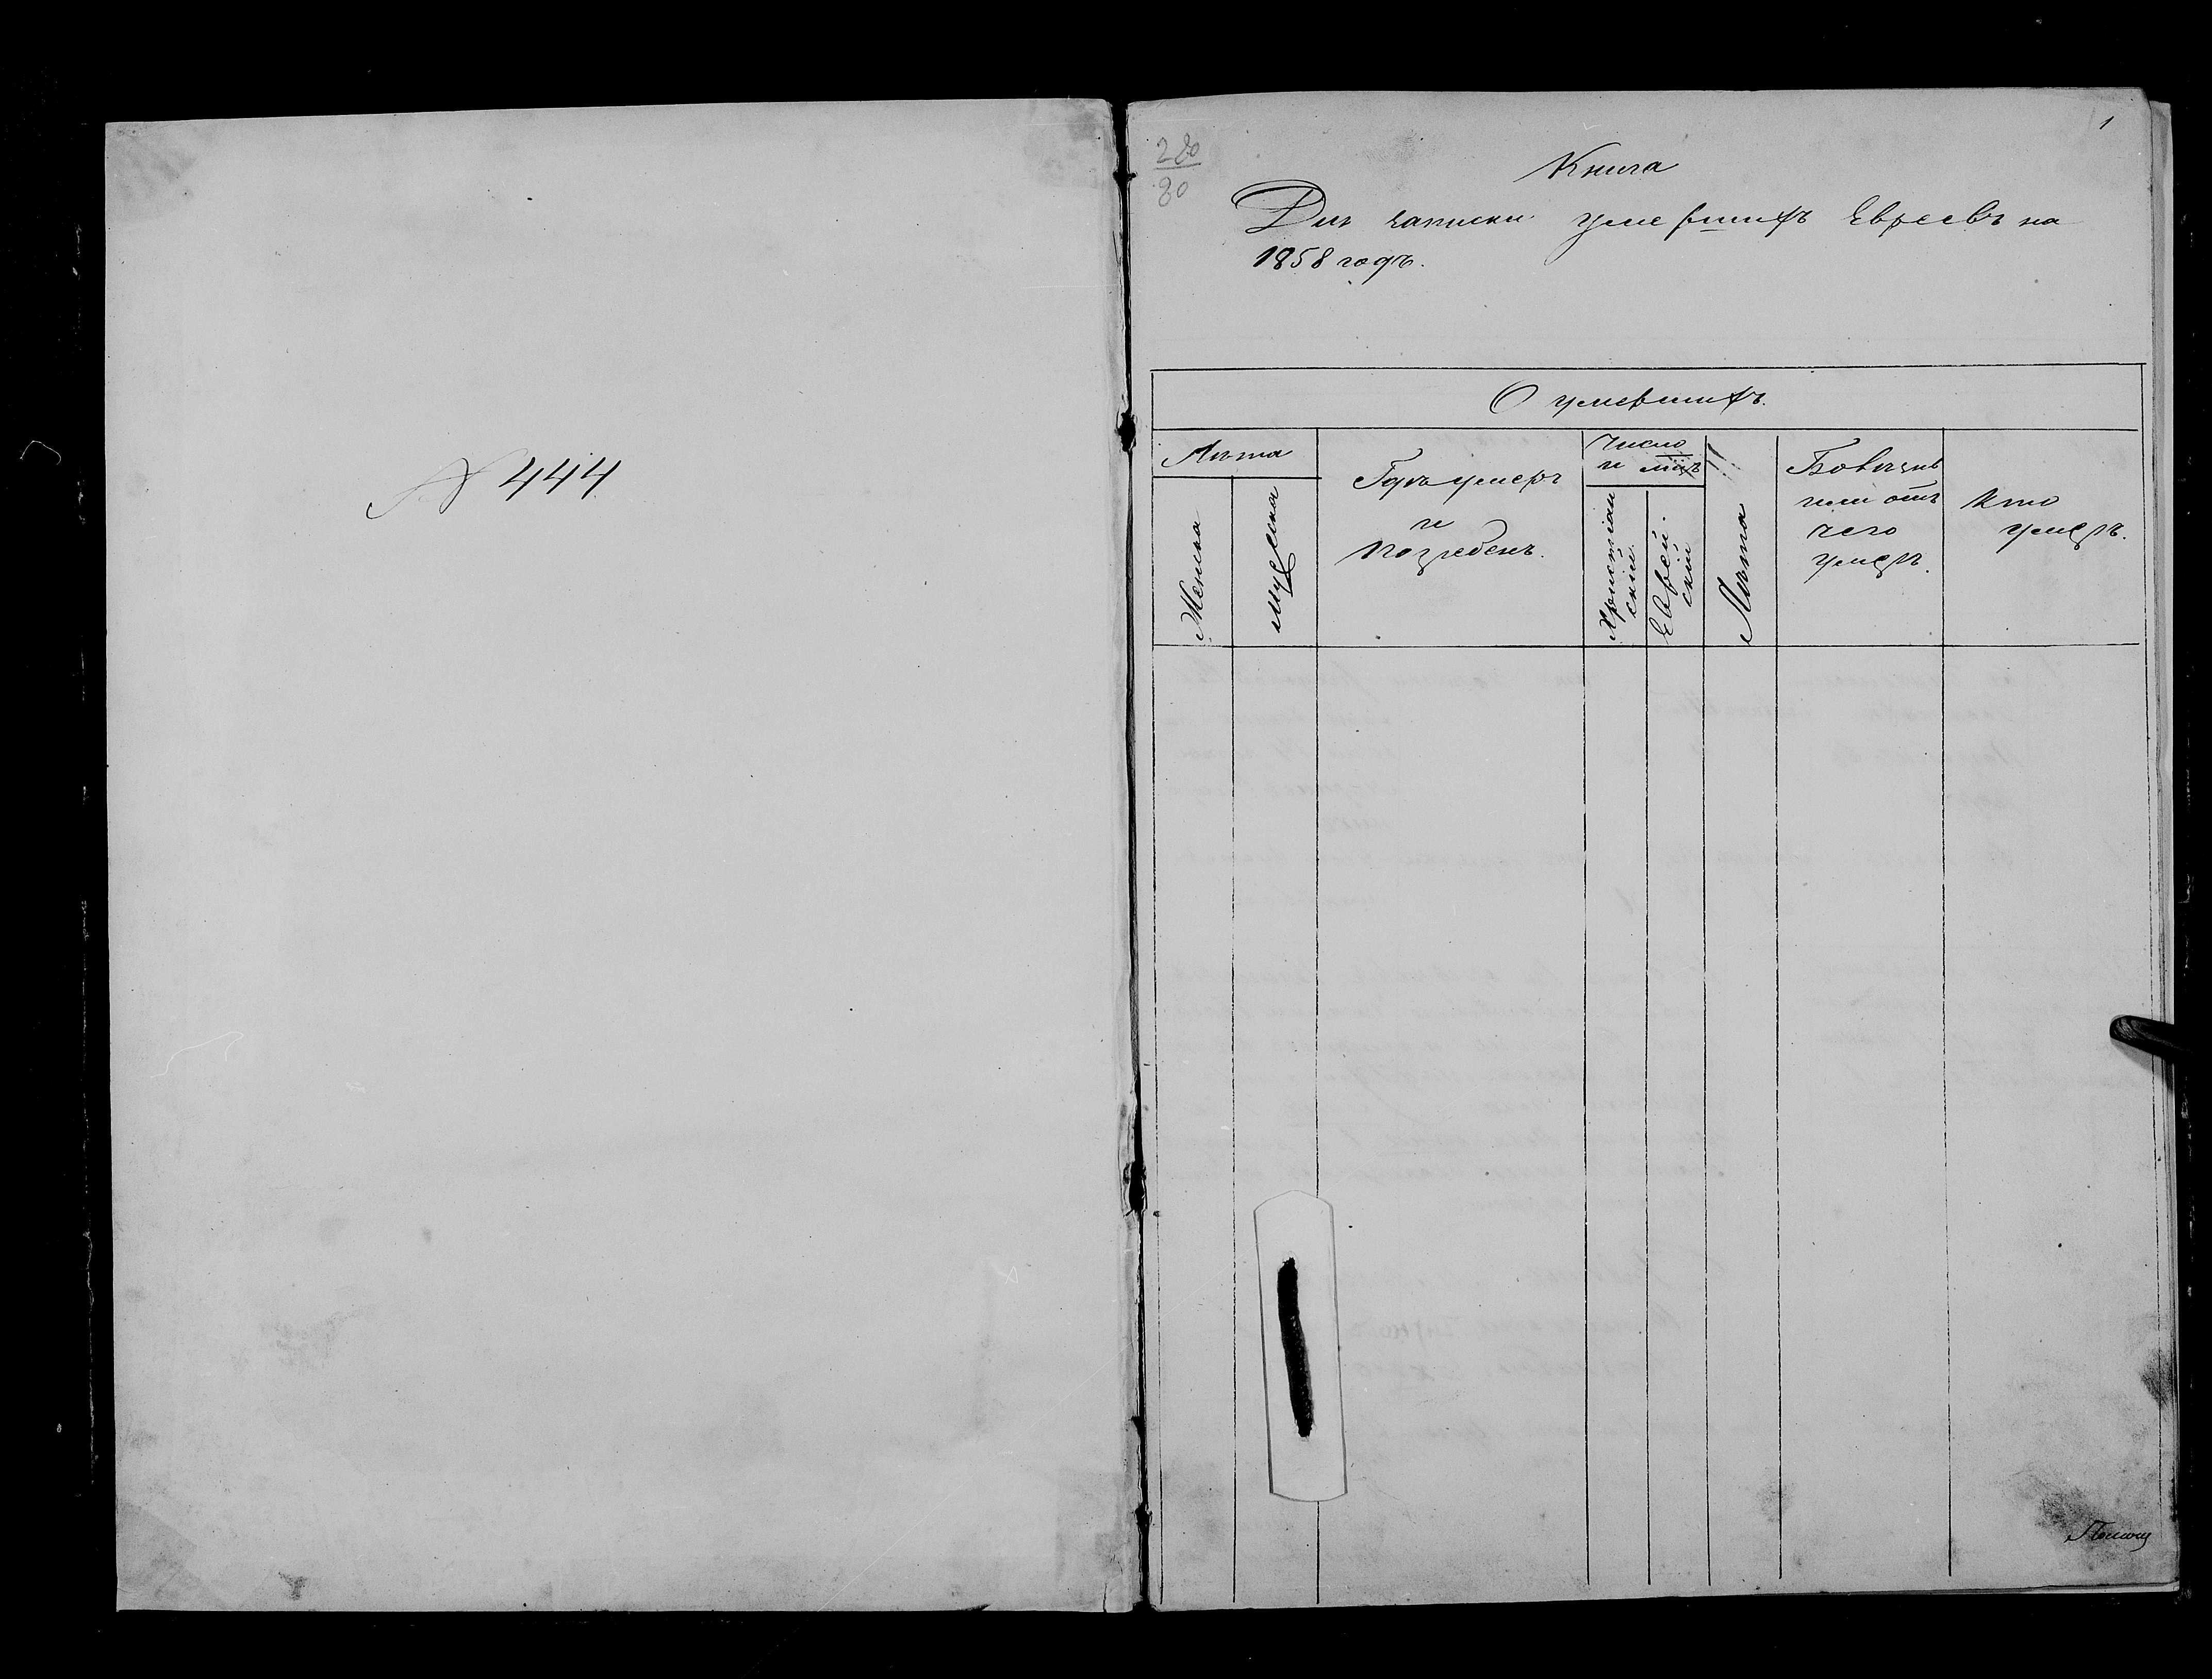 № 444
280
80
1
Книга
Для записки умершихъ Евреевъ на
1858 годъ.
О умершихъ.
Лѣта
Женска
Мужеска
Гдѣ умеръ
и
Погребенъ.
Число
и мцъ
Христіан
скій
Еврей-
скій
Лѣта
Болѣзнь
или отъ
чего
умеръ.
Кто
умеръ.